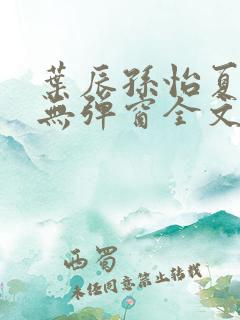 葉辰孫怡夏
無彈窗全文
西蜀
未经同意禁止转载